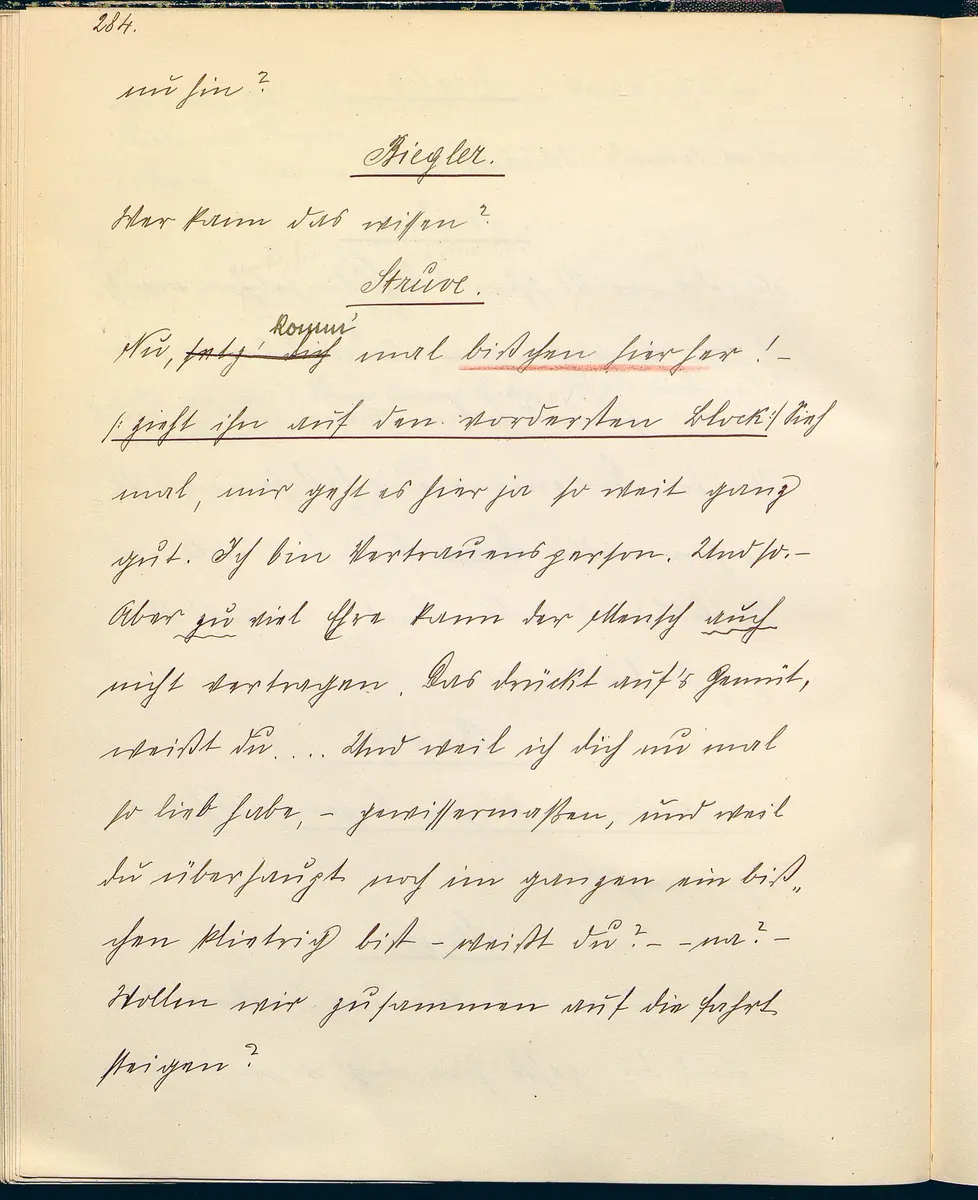 284.
nu hin?
Biegler.
Wer kann das wissen?
Struve.
komm'
Nu, setz' dich mal bißchen hierher! –
/: zieht ihn auf den vordersten Block :/ Sieh
mal, mir geht es hier ja so weit ganz
gut. Ich bin Vertrauensperson. Und so. –
Aber zu viel Ehre kann der Mensch auch
nicht vertragen. Das drückt auf's Gemüt,
weißt du .... Und weil ich dich nu mal
so lieb habe, – gewissermaßen, und weil
du überhaupt noch im ganzen ein biß„
chen klietrig bist – weißt du? – – na? –
Wollen wir zusammen auf die Fahrt
steigen?